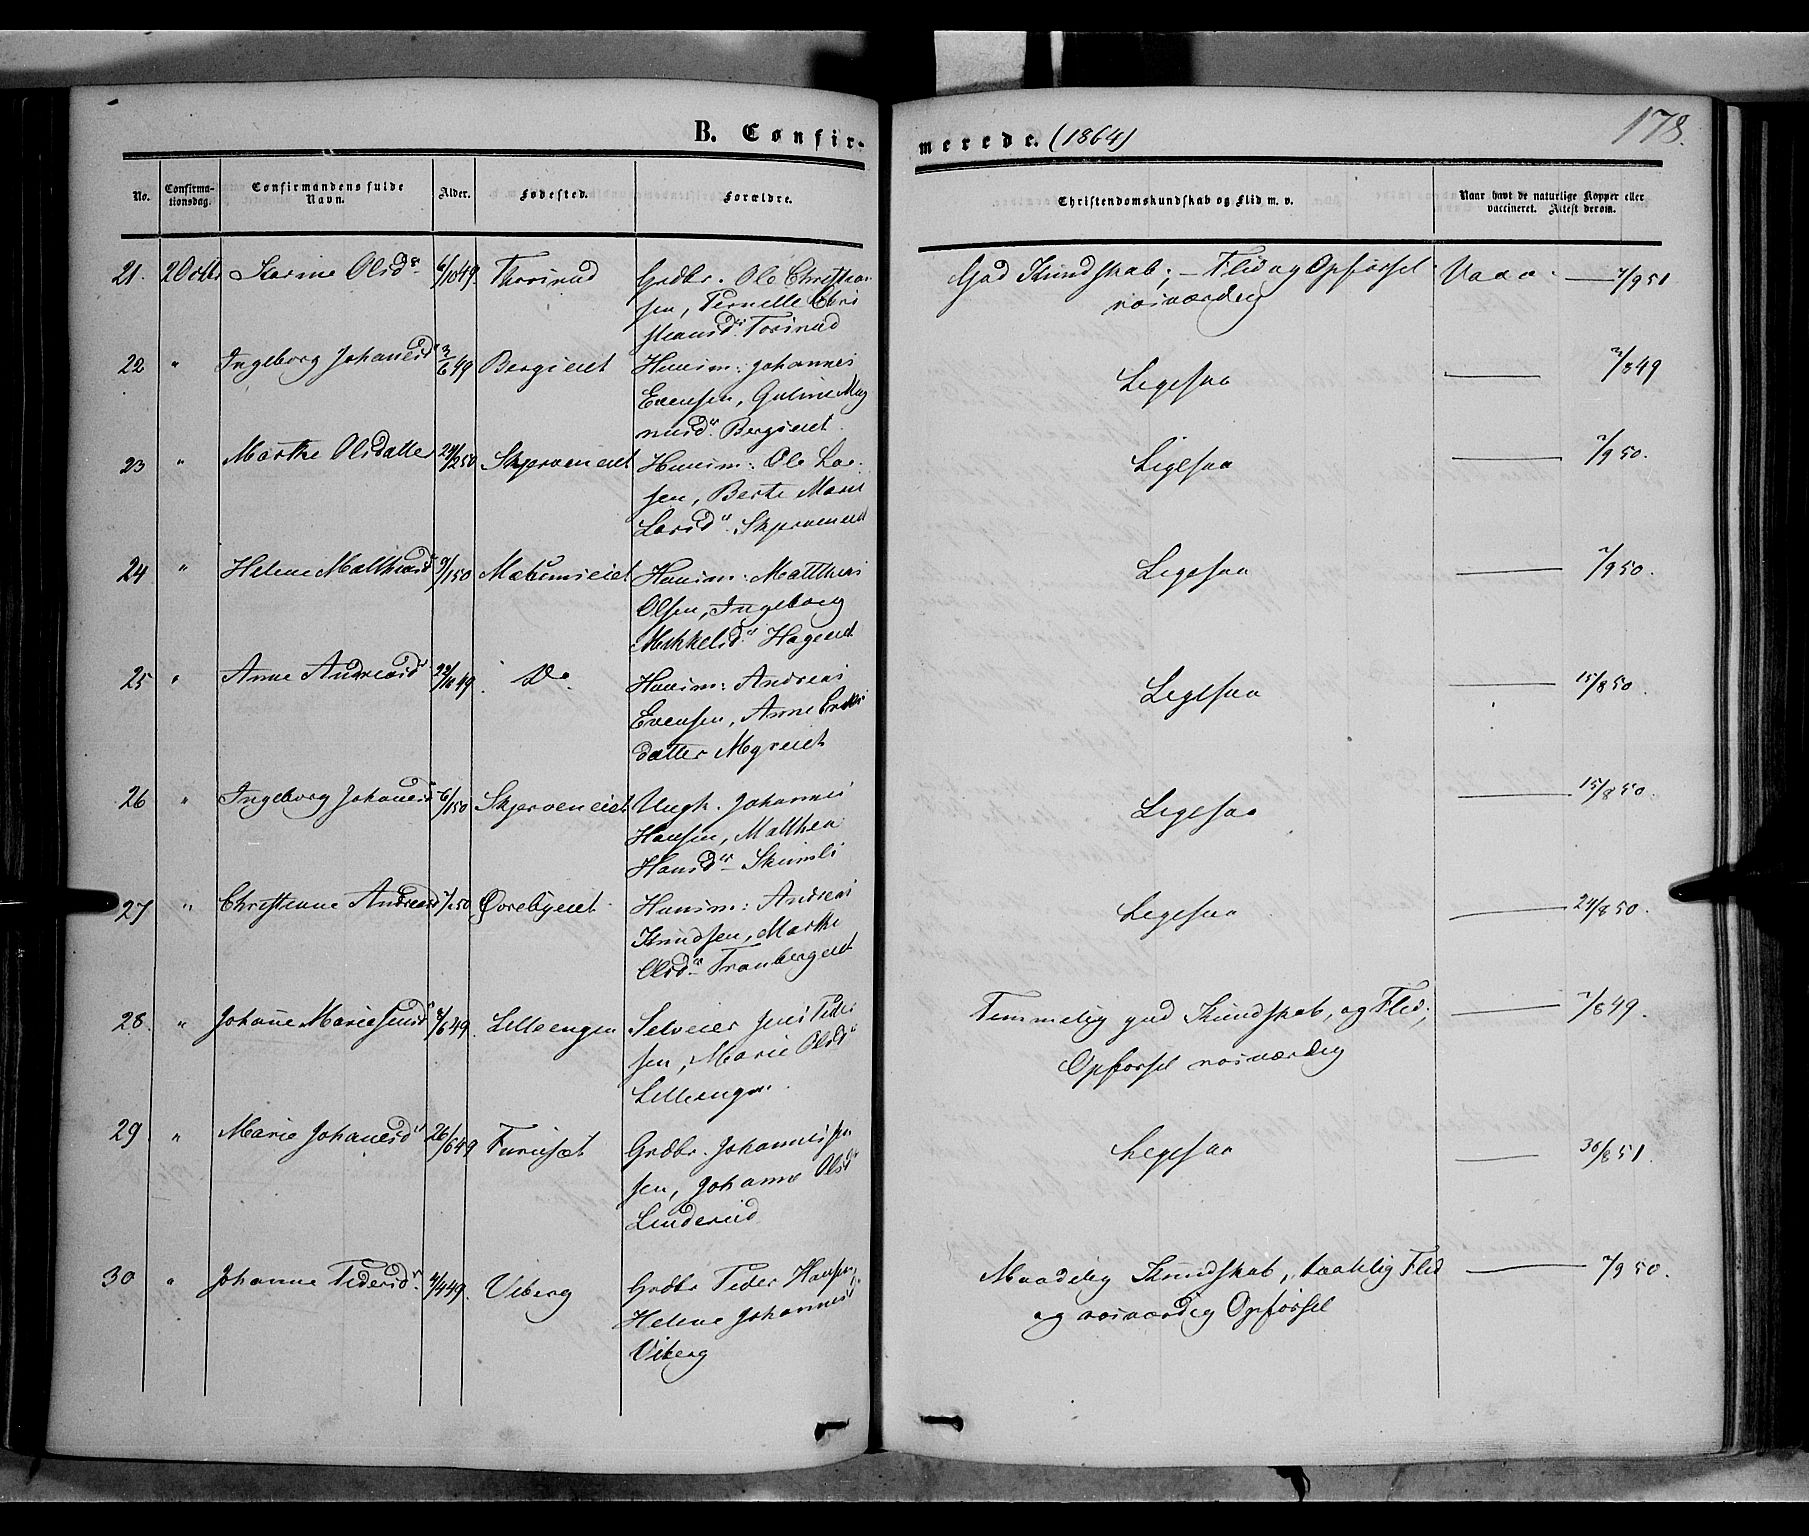 B. Confir-
merede. (1864)
178.
No.
Confirma-
tionsdag.
Confirmandens fulde
Navn.
Alder.
Fødested.
Forældre.
Christendomskundskab og Flid m. v.
Naar havt de naturlige Kopper eller
vaccineret. Attest derom.
21. 2 Octbr Karine Olsdr 6/10 49 Thorsrud Grdbr. Ole Christian
sen, Pernelle Chri
stiansdr Torsrud
God Kundskab; – Flid og Opførsel
rosværdig
Vacc. — 7/9 51
22 " Ingeborg Johanesdr 3/6 49 Bergseiet Huusm: Johannes
Evensen, Guline Mag
nusdr. Bergseiet.
Ligesaa — 2/8 49
23 " Marthe Olsdatter 24/2 50 Skjerveneiet Huusm: Ole Lar-
sen, Berte Marie
Larsdr. Skjerveneiet
Ligesaa — 7/9 50.
24 " Helene Matthiasdr 9/1 50 Mæhumseiet Huusm: Matthias
Olsen, Ingeborg
Mikkelsdr. Hageeiet
Ligesaa — 7/9 50.
25 " Anne Andreasdr 29/10 49. Do Huusm: Andreas
Evensen, Anne Eriks
datter Myreiet
Ligesaa — 15/8 50.
26 " Ingeborg Johanesdr 6/1 50 Skjerveneiet Ungk. Johannes
Hansen, Matthea
Hansdr Skiæmli
Ligesaa — 15/8 50.
27 " Christiane Andreasd 7/1 50 Øvrebyeiet Huusm: Andreas
Knudsen, Marthe
Olsdr Tranbergeiet
Ligesaa — 24/8 50.
28. " Johane Marie Jensdr 8/6 49. Lilleengen Selveier Jens Peder
sen, Marie Olsdr
Lilleengen.
Temmelig god Kundskab, og Flid;
Opførsel rosværdig
— 7/8 49.
29 " Marie Johanesdr 26/6 49 Furuset Grdbr. Johannes
sen, Johanne Olsdr
Linderud
Ligesaa — 30/8 51.
30 " Johanne Pedersdr. 4/4 49. Viberg Grdbr Peder Hansen,
Helene Johannesd
Viberg
Maadelig Kundskab, taalelig Flid
og rosværdig Opførsel
— 7/9 50.